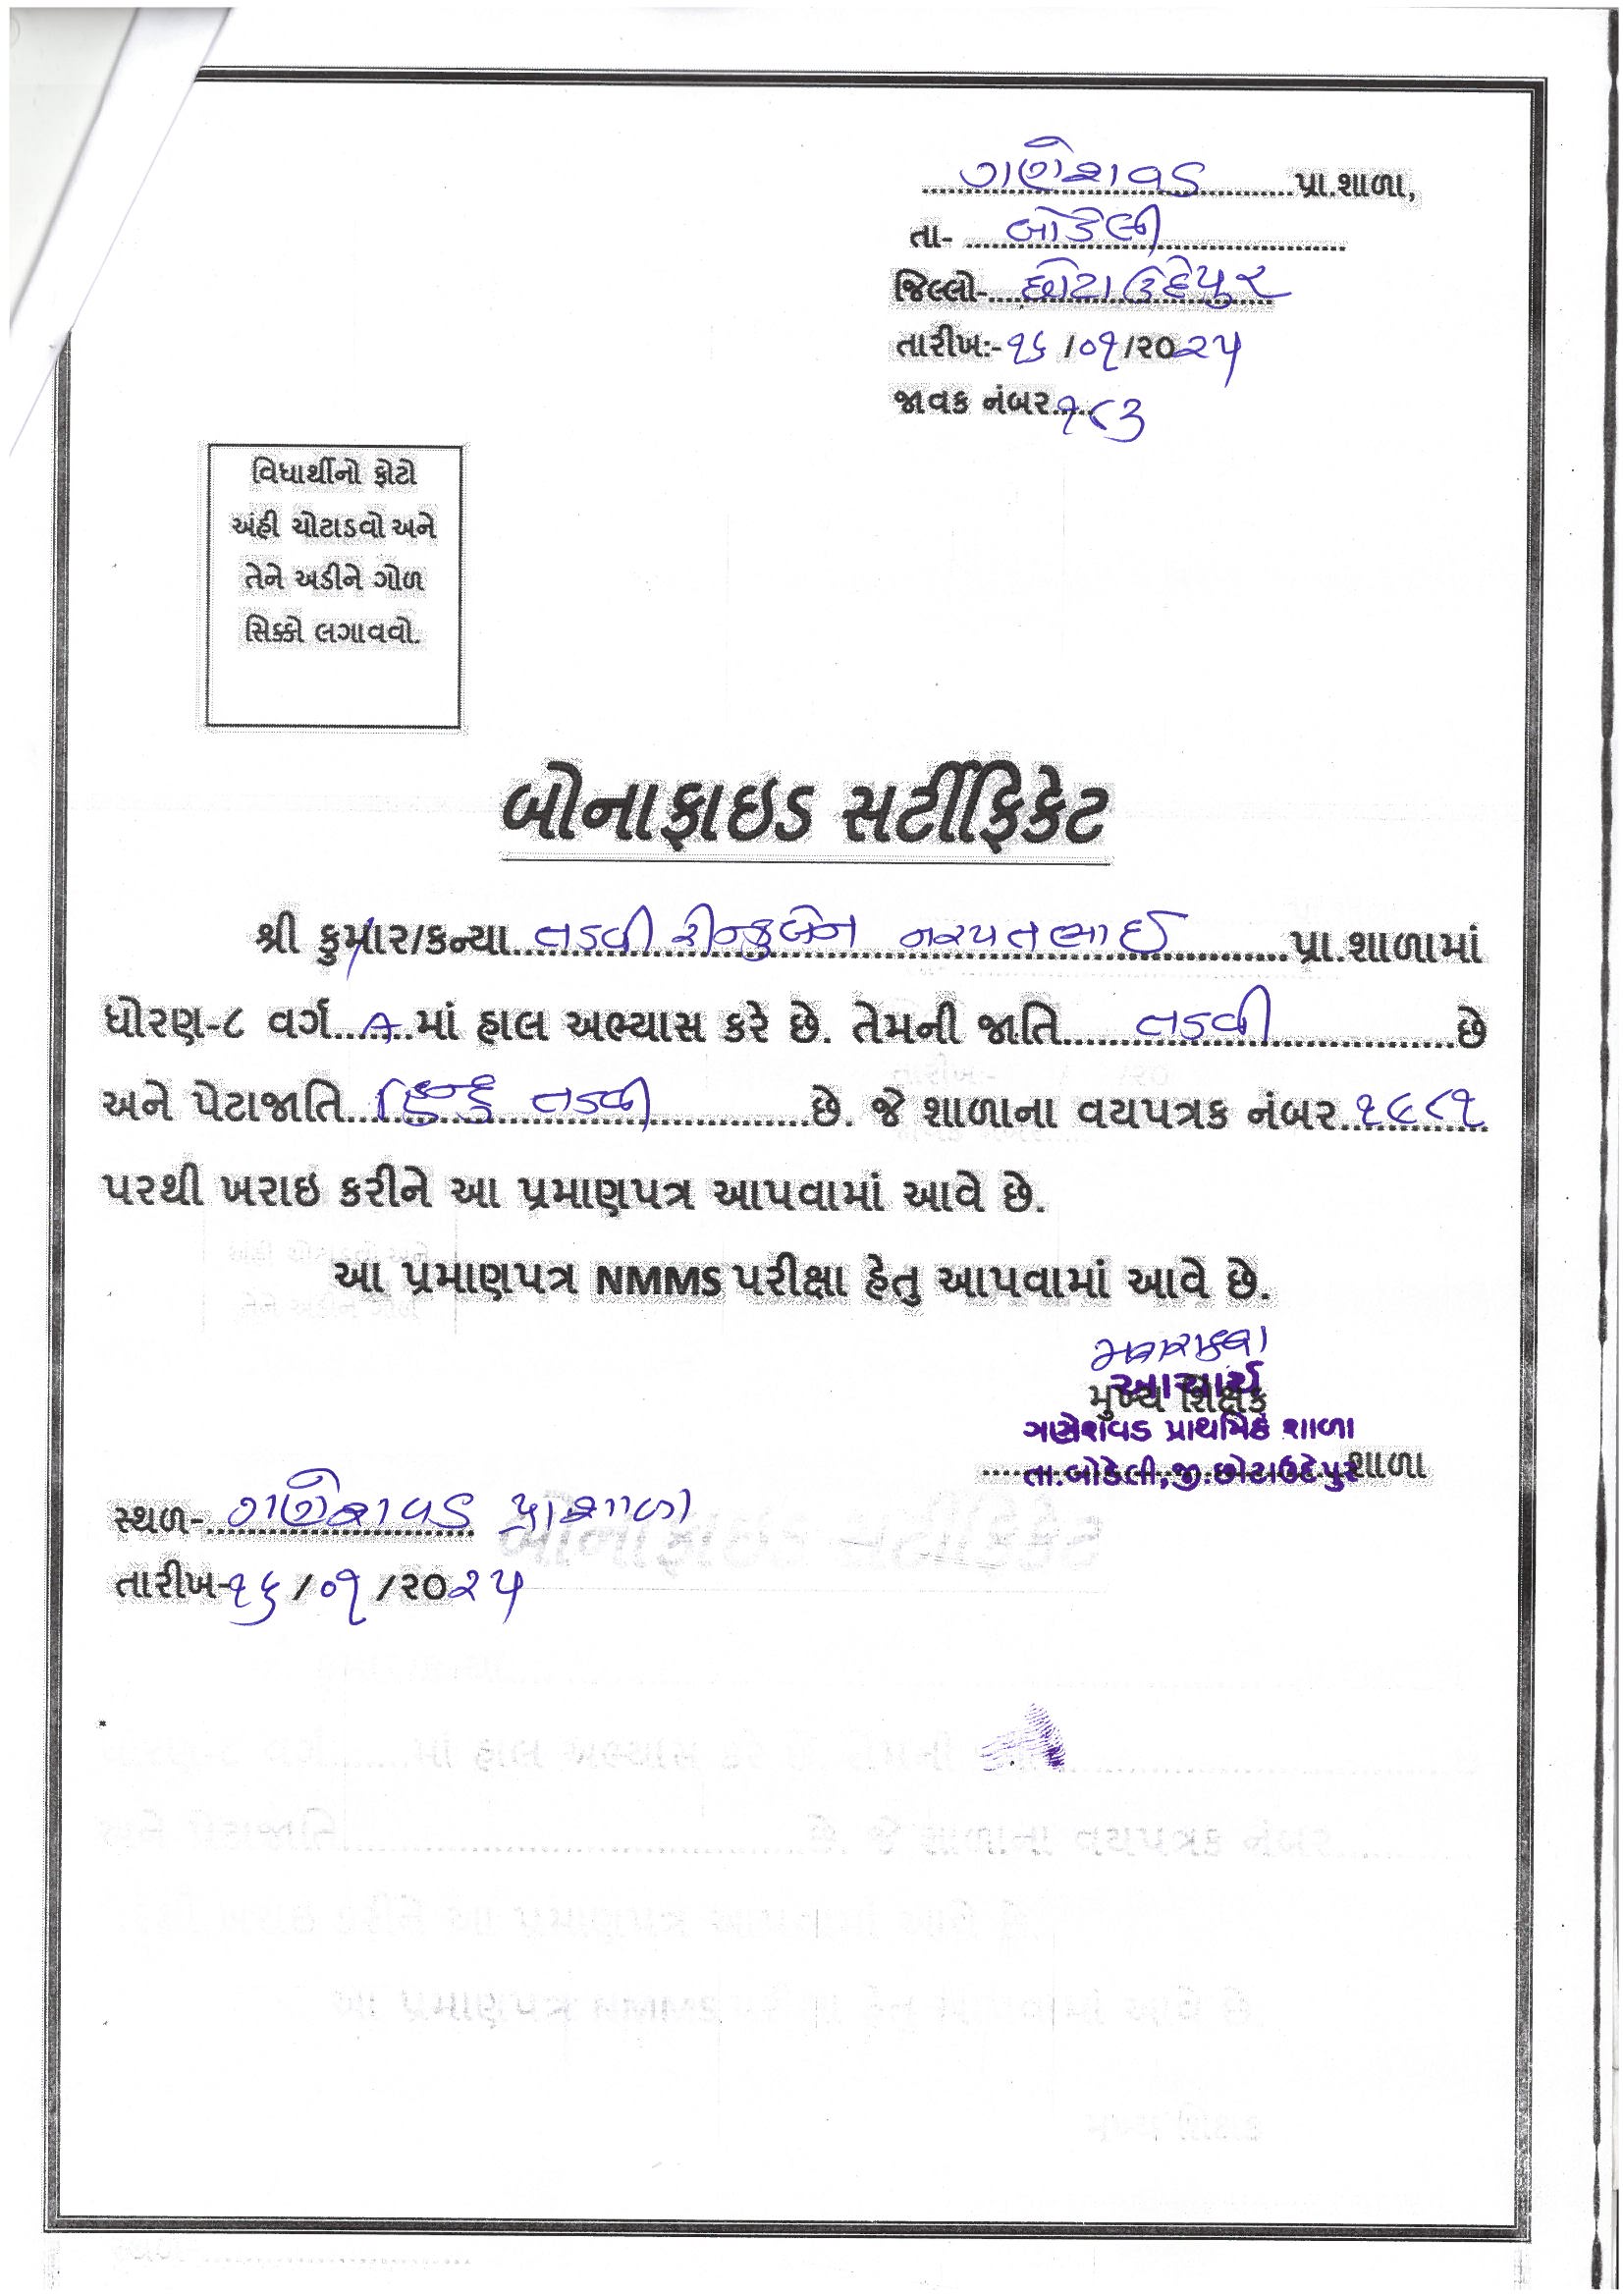 ગણેશવડ પ્રા.શાળા,
તા- બોડેલી
જિલ્લો- છોટાઉદેપુર
તારીખ:- ૧૬ /૦૧ /૨૦૨૫
જાવક નંબર ૧૮૩
વિધાર્થીનો ફોટો
અંહી ચોટાડવો અને
તેને અડીને ગોળ
સિક્કો લગાવવો.
બોનાફાઇડ સર્ટીફિકેટ
શ્રી કુમાર/કન્યા તડવી રીન્કુબેન નરપતભાઈ પ્રા.શાળામાં
ધોરણ-૮ વર્ગ A માં હાલ અભ્યાસ કરે છે. તેમની જાતિ તડવી છે
અને પેટાજાતિ હિન્દુ તડવી છે. જે શાળાના વયપત્રક નંબર ૧૯૮૧
પરથી ખરાઇ કરીને આ પ્રમાણપત્ર આપવામાં આવે છે.
આ પ્રમાણપત્ર NMMS પરીક્ષા હેતુ આપવામાં આવે છે.
આચાર્ય
મુખ્ય શિક્ષક
ગણેશવડ પ્રાથમિક શાળા
તા.બોડેલી,જી.છોટાઉદેપુર શાળા
સ્થળ- ગણેશવડ પ્રા શાળા
તારીખ- ૧૬ / ૦૧ /૨૦૨૫